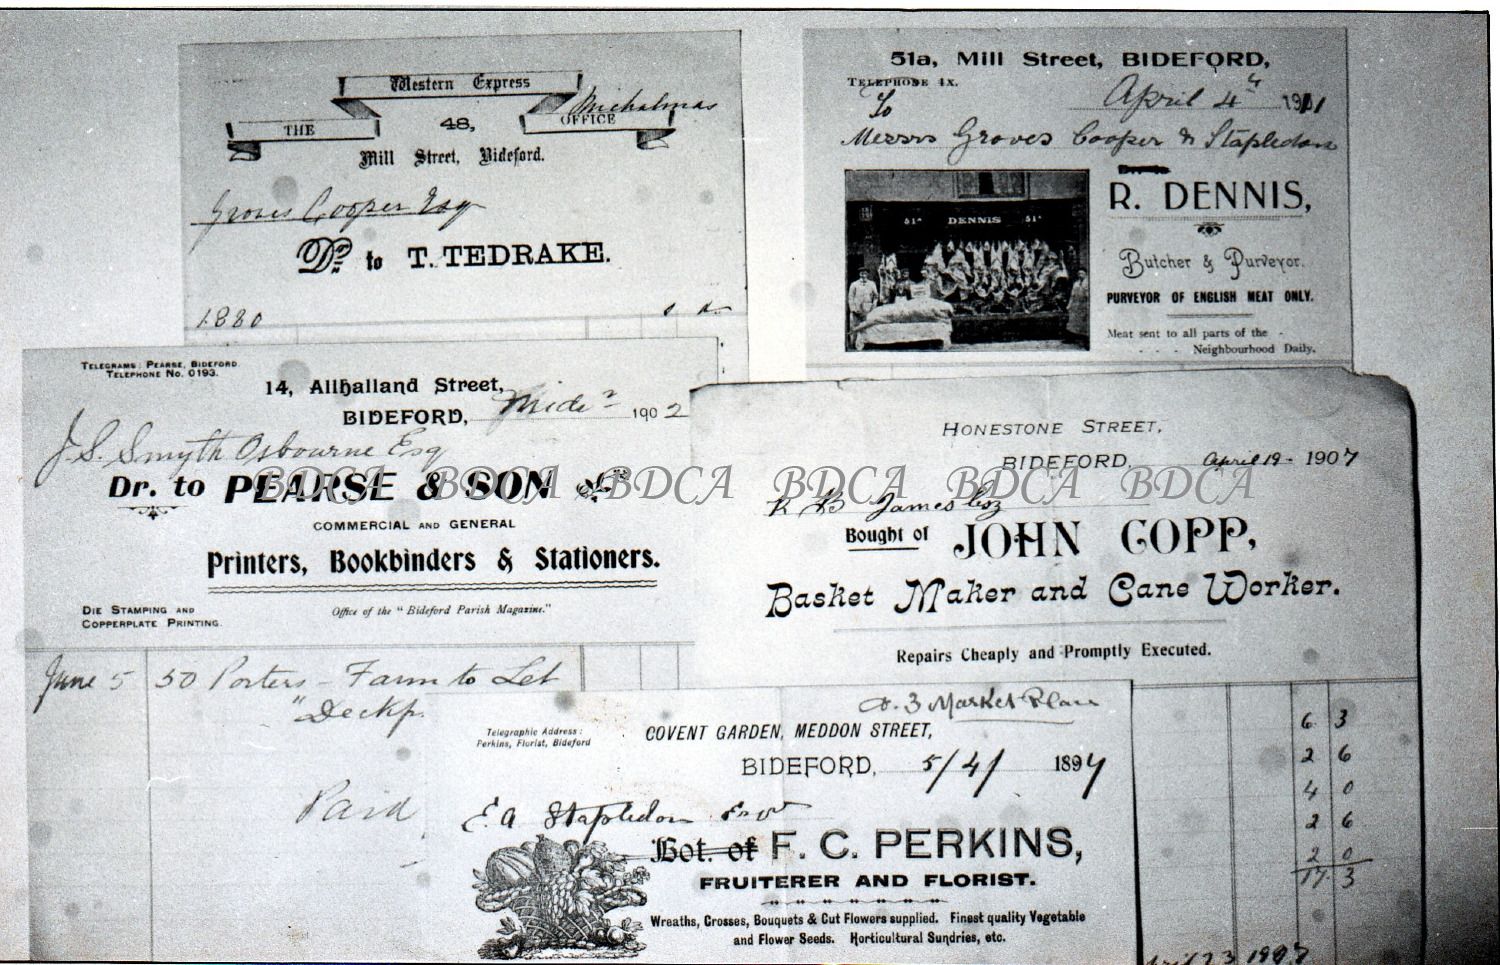 Western Express
THE 48, OFFICE
Michalmas
Mill Street, Bideford.
Groves Cooper Esq
Dr. to T. TEDRAKE.
1880
s d
51a, Mill Street, BIDEFORD,
TELEPHONE 4X.
April 4th 1911
To
Messrs Groves Cooper & Stapledon
51A DENNIS 51A
R. DENNIS,
Butcher & Purveyor.
PURVEYOR OF ENGLISH MEAT ONLY.
Meat sent to all parts of the
Neighbourhood Daily.
TELEGRAMS: PEARSE, BIDEFORD.
TELEPHONE NO. 0193.
14, Allhalland Street,
BIDEFORD, 1902
J.S. Smyth Osbourne Esq
Dr. to PEARSE & SON
COMMERCIAL AND GENERAL
Printers, Bookbinders & Stationers.
DIE STAMPING AND
COPPERPLATE PRINTING.
Office of the "Bideford Parish Magazine."
June 5 50 Posters - Farm to Let
Paid
BDCA BDCA BDCA BDCA BDCA BDCA
HONESTONE STREET,
BIDEFORD, April 19 - 1907
R B James Esq
Bought of JOHN COPP,
Basket Maker and Cane Worker.
Repairs Cheaply and Promptly Executed.
6 3
2 6
4 0
2 6
2 0
17 3
& 3 Market Place
Telegraphic Address:
Perkins, Florist, Bideford
COVENT GARDEN, MEDDON STREET,
BIDEFORD, 5/4/ 1897
E.A Stapledon Esqr
Bot. of F. C. PERKINS,
FRUITERER AND FLORIST.
Wreaths, Crosses, Bouquets & Cut Flowers supplied. Finest quality Vegetable
and Flower Seeds. Horticultural Sundries, etc.
April 23 1907